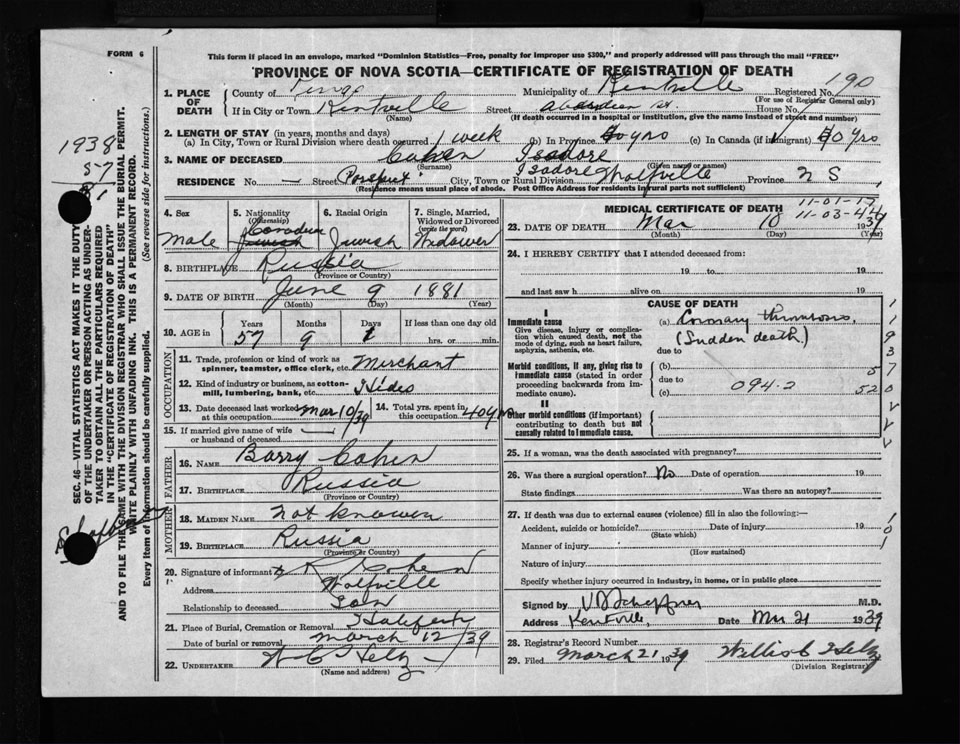 FORM 6
This form if placed in an envelope, marked "Dominion Statistics—Free, penalty for improper use $300," and properly addressed will pass through the mail "FREE"
PROVINCE OF NOVA SCOTIA—CERTIFICATE OF REGISTRATION OF DEATH
1. PLACE OF DEATH County of Kings Municipality of Kentville Registered No. 190
(For use of Registrar General only)
If in City or Town Kentville Street House No.
(Name) (If death occurred in a hospital or institution, give its name instead of street and number)
2. LENGTH OF STAY (in years, months and days)
(a) In City, Town or Rural Division where death occurred 1 week (b) In Province 40 yrs (c) In Canada (if immigrant) 40 yrs
3. NAME OF DECEASED Cohen Isadore
(Surname) (Given name or names)
Isadore
RESIDENCE No. — Street Prospect City, Town or Rural Division Wolfville Province N S
(Residence means usual place of abode. Post Office Address for residents in rural parts not sufficient)
4. Sex
Male
5. Nationality (Citizenship)
Canadian
Jewish
6. Racial Origin
Jewish
7. Single, Married, Widowed or Divorced (write the word)
Widower
8. BIRTHPLACE Russia
(Province or Country)
9. DATE OF BIRTH June 9 1881
(Month) (Day) (Year)
10. AGE in Years Months Days If less than one day old
57 9 1 hrs. or min.
OCCUPATION
11. Trade, profession or kind of work as spinner, teamster, office clerk, etc. Merchant
12. Kind of industry or business, as cotton-mill, lumbering, bank, etc. Hides
13. Date deceased last worked at this occupation Mar 10/39
14. Total yrs. spent in this occupation 40 yrs
15. If married give name of wife or husband of deceased —
FATHER
16. NAME Barry Cohen
17. BIRTHPLACE Russia
(Province or Country)
MOTHER
18. MAIDEN NAME not known
19. BIRTHPLACE Russia
(Province or Country)
20. Signature of informant Cohen
Address Wolfville
Relationship to deceased Son
21. Place of Burial, Cremation or Removal Halifax
Date of burial or removal March 12/39
22. UNDERTAKER W C Helz
(Name and address)
MEDICAL CERTIFICATE OF DEATH
11-01-17
11-03-44
23. DATE OF DEATH Mar 10 1939
(Month) (Day) (Year)
24. I HEREBY CERTIFY that I attended deceased from:
19 to 19
and last saw h alive on 19
CAUSE OF DEATH
I
Immediate cause
Give disease, injury or complication which caused death, not the mode of dying, such as heart failure, asphyxia, asthenia, etc.
(a) Coronary thrombosis
(Sudden death.)
due to
Morbid conditions, if any, giving rise to immediate cause (stated in order proceeding backwards from immediate cause).
(b)
due to 094.2
(c)
II
Other morbid conditions (if important) contributing to death but not causally related to immediate cause.
25. If a woman, was the death associated with pregnancy?
26. Was there a surgical operation? No Date of operation 19
State findings Was there an autopsy?
27. If death was due to external causes (violence) fill in also the following:—
Accident, suicide or homicide? Date of injury 19
(State which)
Manner of injury
(How sustained)
Nature of injury
Specify whether injury occurred in industry, in home, or in public place
Signed by M.D.
Address Kentville, Date Mar 21 1939
28. Registrar's Record Number
29. Filed March 21 1939 Willis C Helz
(Division Registrar)
1938
57
81
SEC. 46—VITAL STATISTICS ACT MAKES IT THE DUTY
OF THE UNDERTAKER OR PERSON ACTING AS UNDER-
TAKER TO OBTAIN ALL THE PARTICULARS REQUIRED
IN THE "CERTIFICATE OF REGISTRATION OF DEATH"
AND TO FILE THE SAME WITH THE DIVISION REGISTRAR WHO SHALL ISSUE THE BURIAL PERMIT.
WRITE PLAINLY WITH UNFADING INK. THIS IS A PERMANENT RECORD.
Every item of information should be carefully supplied. (See reverse side for instructions.)